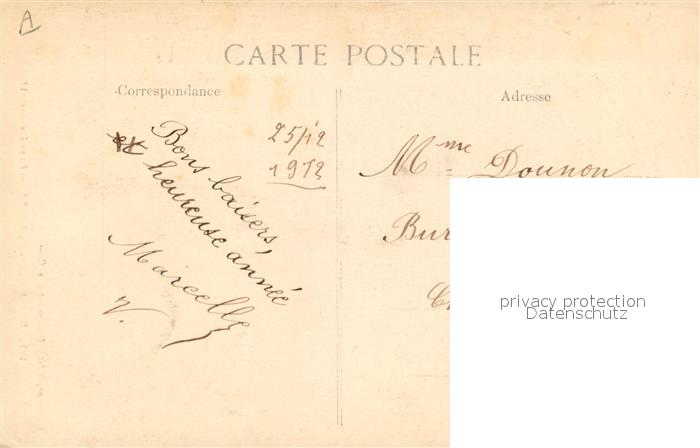 A
CARTE POSTALE
Correspondance
Adresse
25/12
1912
Bons baisers,
et heureuse année
Marcelle
V.
Mme Dounon
privacy protection
Datenschutz